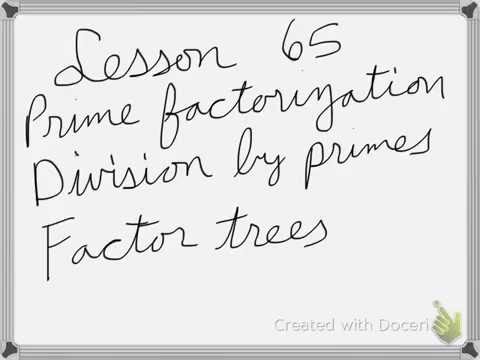 Lesson 65
Prime factorization
Division by primes
Factor trees
Created with Doceri